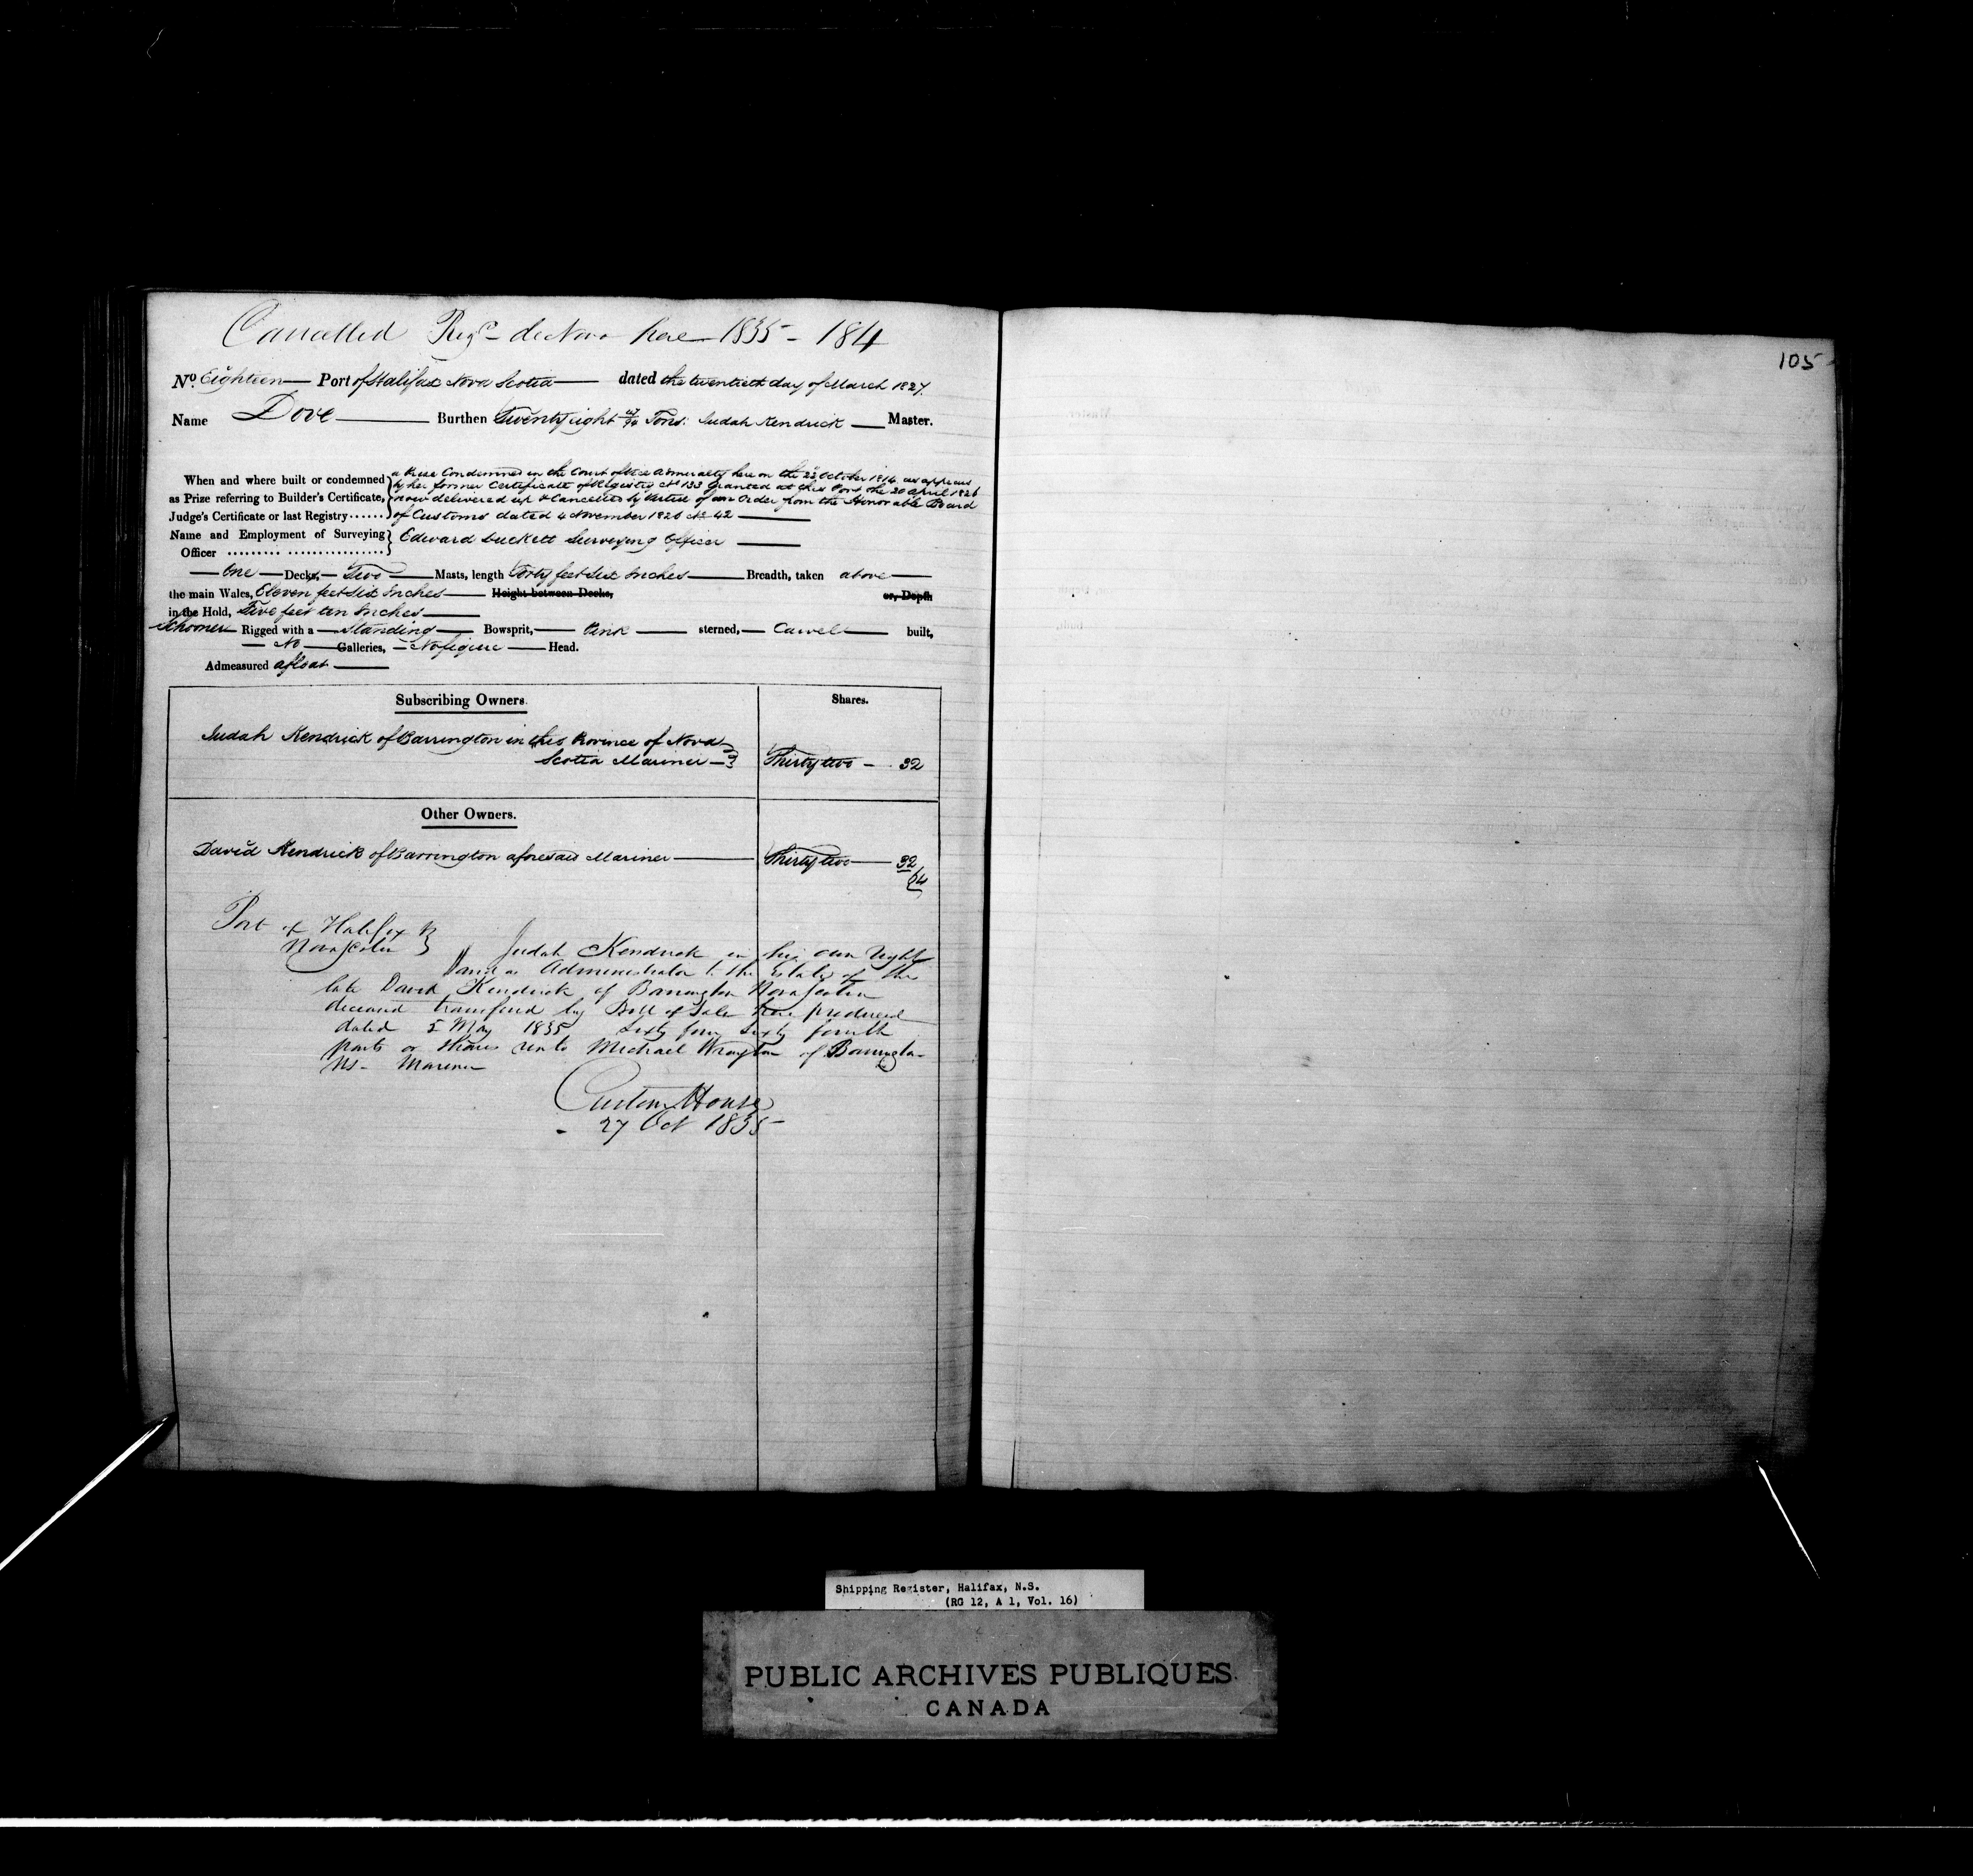 Cancelled Regd de Novo here 1835 - 184
105
No. Eighteen Port of Halifax Nova Scotia dated the twentieth day of March 1827.
Name Dove Burthen Twenty eight 47/94 Tons. Judah Kendrick Master.
When and where built or condemned } a Prize Condemned in the Court of Vice Admiralty here on the 22 October 1814 as appears
as Prize referring to Builder's Certificate, by her former Certificate of Register No 133 Granted at this Port the 20 April 1826
Judge's Certificate or last Registry ...... now delivered up & Cancelled by virtue of an Order from the Honorable Board
of Customs dated 4 November 1826 No 42
Name and Employment of Surveying } Edward Duckett Surveying Officer
Officer ......... ................
One Decks, Two Masts, length Forty feet Six Inches Breadth, taken above
the main Wales, Eleven feet Six Inches Height between Decks, or, Depth
in the Hold, Five feet ten Inches
Schooner Rigged with a Standing Bowsprit, Pink sterned, Carvel built,
No Galleries, No figure Head.
Admeasured afloat
Subscribing Owners. Shares.
Judah Kendrick of Barrington in this Province of Nova
Scotia Mariner Thirty two - 32
Other Owners.
David Kendrick of Barrington aforesaid Mariner Thirty two 32
64
Port of Halifax }
Nova Scotia } Judah Kendrick in his own right
and as Administrator to the Estate of the
late David Kendrick of Barrington Nova Scotia
deceased transferred by Bill of Sale here produced
dated 5 May 1835 Sixty four Sixty fourth
parts or shares unto Michael Wrayton of Barrington
NS - Mariner
Custom House
27 Oct 1835
Shipping Register, Halifax, N.S.
(RG 12, A 1, Vol. 16)
PUBLIC ARCHIVES PUBLIQUES
CANADA